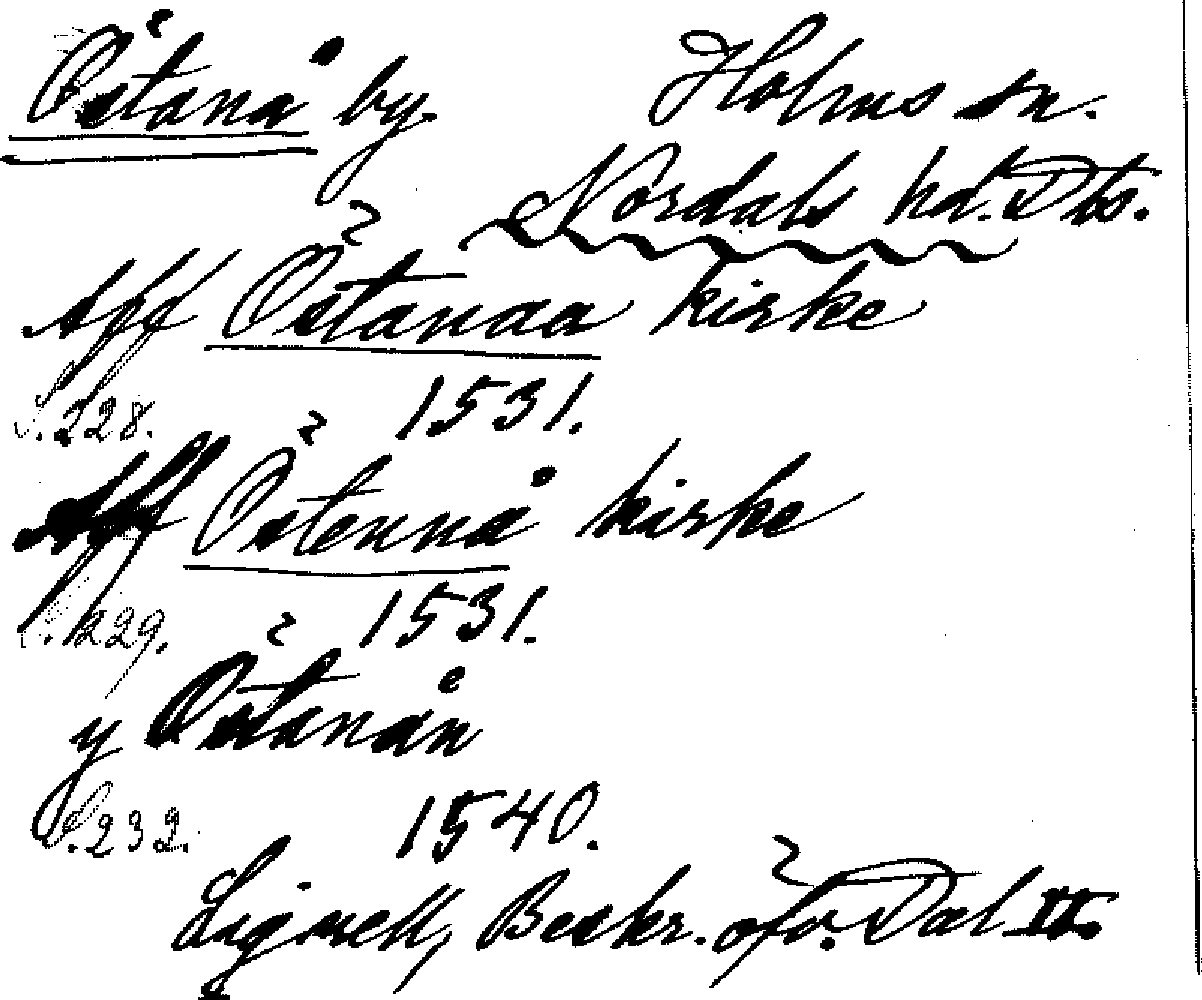 Östanå by. Holms sn.
Nordals hd. Dls.
Aff Östanaa kirke
S. 228. 1531.
Aff Östennå kirke
S. 229. 1531.
y Östanån
S. 232. 1540.
Lignell, Beskr. öfv. Dal II.